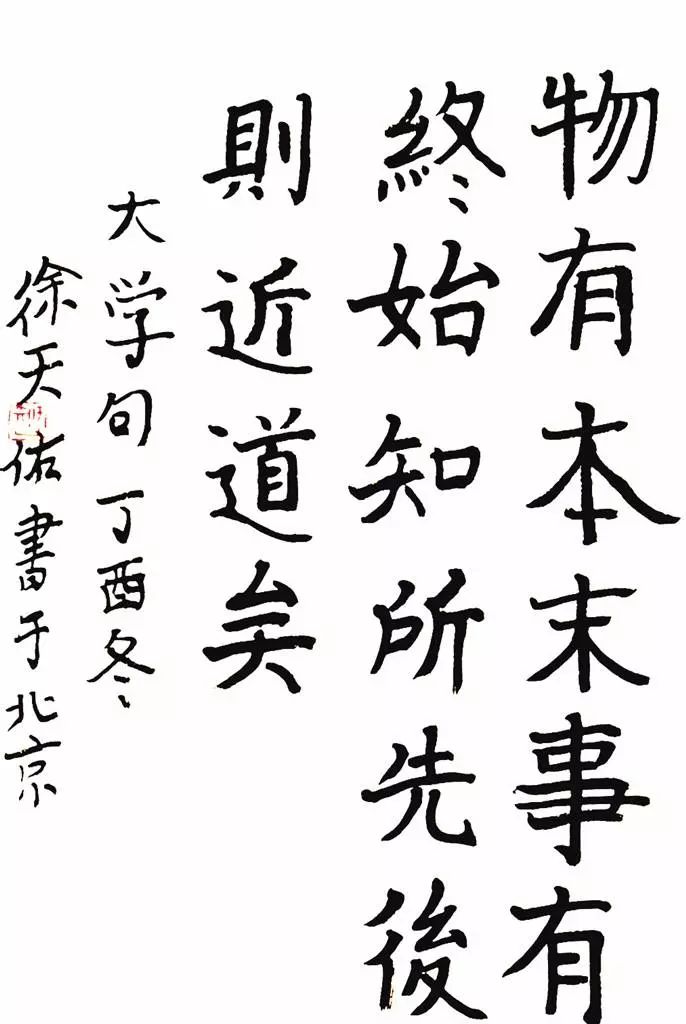 物有本末事有
終始知所先後
則近道矣
大学句丁酉冬
徐天佑書于北京